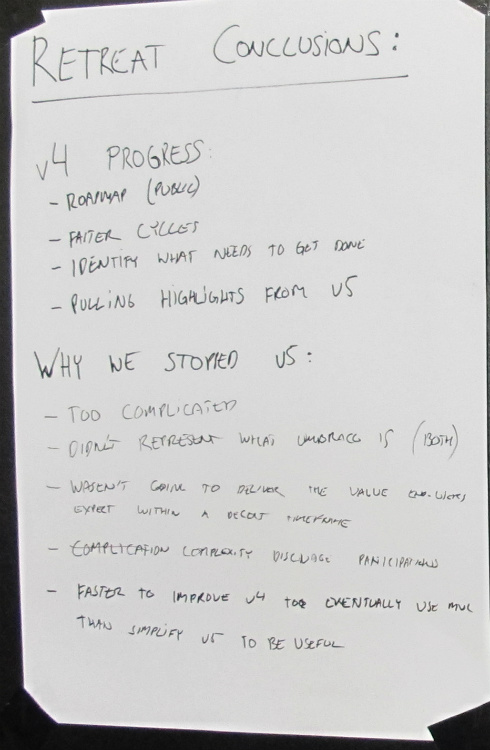 RETREAT CONCLUSIONS:
v4 PROGRESS:
- ROADMAP (PUBLIC)
- FASTER CYCLES
- IDENTIFY WHAT NEEDS TO GET DONE
- PULLING HIGHLIGHTS FROM v5
WHY WE STOPPED v5:
- TOO COMPLICATED
- DIDN'T REPRESENT WHAT UMBRACO IS (BOTH)
- WASN'T GOING TO DELIVER THE VALUE END-USERS
EXPECT WITHIN A DECENT TIMEFRAME
- COMPLICATION COMPLEXITY DISCURAGE PARTICIPATIONS
- FASTER TO IMPROVE v4 TOO EVENTUALLY USE MVC
THAN SIMPLIFY v5 TO BE USEFUL